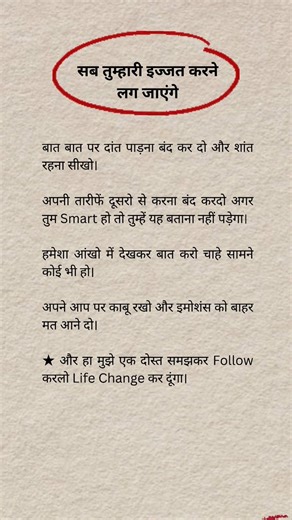 सब तुम्हारी इज्जत करने
लग जाएंगे
बात बात पर दांत पाड़ना बंद कर दो और शांत
रहना सीखो।
अपनी तारीफें दूसरो से करना बंद करदो अगर
तुम Smart हो तो तुम्हें यह बताना नहीं पड़ेगा।
हमेशा आंखो में देखकर बात करो चाहे सामने
कोई भी हो।
अपने आप पर काबू रखो और इमोशंस को बाहर
मत आने दो।
★ और हा मुझे एक दोस्त समझकर Follow
करलो Life Change कर दूंगा।